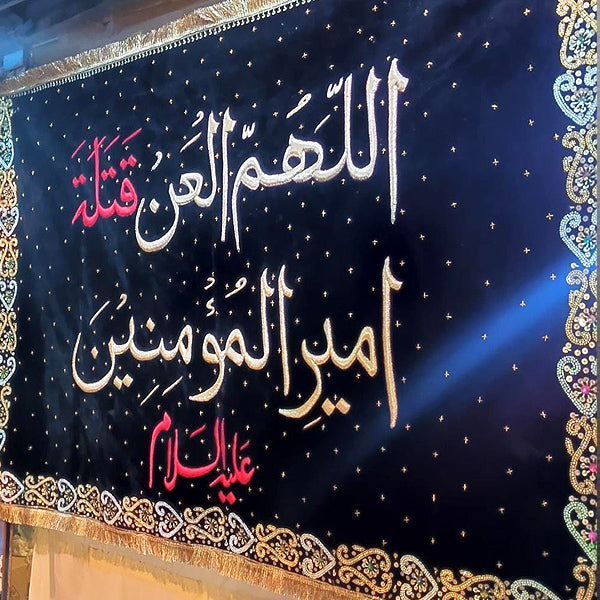 اللّهُمَّ العَنْ قَتَلَةَ
امیرِالمُؤْمِنِیْنَ
علیه السلام